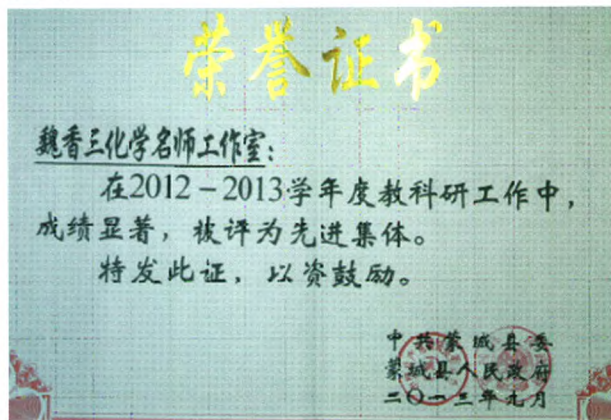 荣誉证书
魏香三化学名师工作室:
在2012-2013学年度教科研工作中,
成绩显著,被评为先进集体。
特发此证,以资鼓励。
中共蒙城县委
蒙城县人民政府
二〇一三年九月